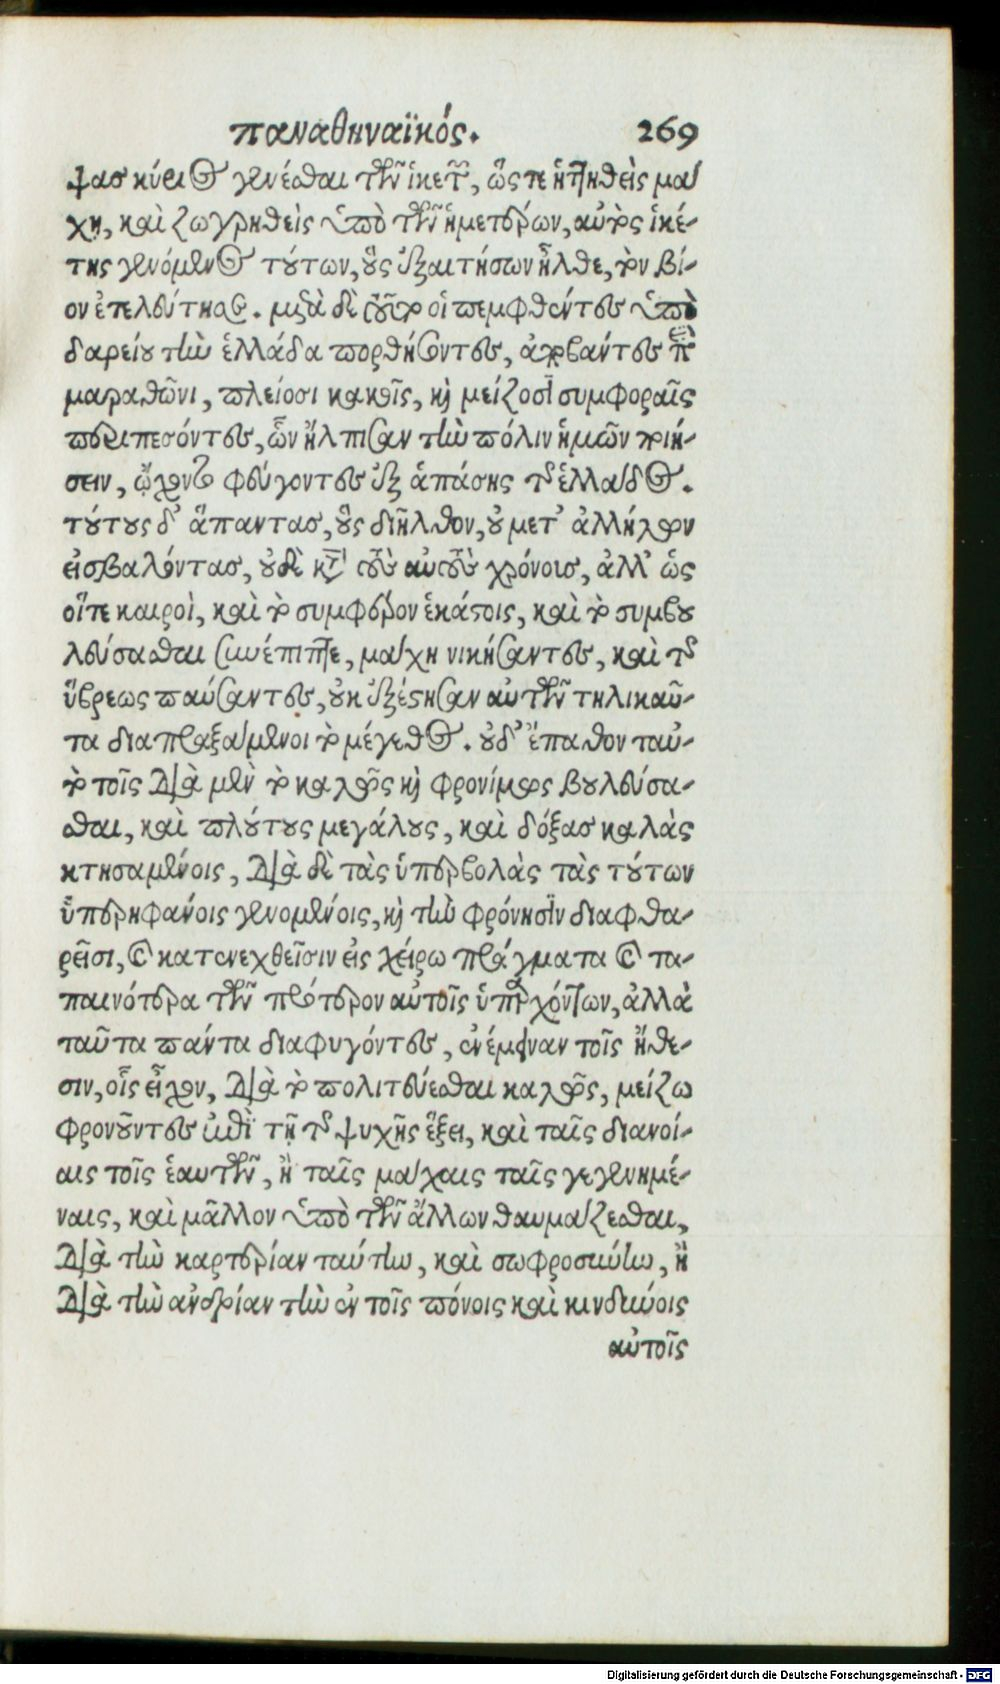 παναθηναϊκός. 269
ψας κύριος γενέσθαι τῶν ἱκετῶν, ὥςτε ἡττηθεὶς μά
χῃ, καὶ ζωγρηθεὶς ὑπὸ τῶν ἡμετέρων, αὐτὸς ἱκέ-
της γενόμενος τούτων, οὓς ἐξαιτήσων ἦλθε, τὸν βί-
ον ἐτελεύτησε. μετὰ δὲ τοῦτον οἱ πεμφθέντες ὑπὸ
δαρείου τὴν ἑλλάδα πορθήσοντες, ἀποβάντες ἐπὶ
μαραθῶνι, πλείοσι κακοῖς, καὶ μείζοσι συμφοραῖς
περιπεσόντες, ὧν ἤλπισαν τὴν πόλιν ἡμῶν ποιή-
σειν, ᾤχοντο φεύγοντες ἐξ ἁπάσης τῆς ἑλλάδος.
τούτους δ' ἅπαντας, οὓς διῆλθον, οὐ μετ' ἀλλήλων
εἰσβαλόντας, οὐδὲ κατὰ τοὺς αὐτοὺς χρόνους, ἀλλ' ὡς
οἵτε καιροὶ, καὶ τὸ συμφέρον ἑκάστοις, καὶ τὸ συμβου
λεύσασθαι συνέπιπτε, μάχῃ νικήσαντες, καὶ τῆς
ὕβρεως παύσαντες, οὐκ ἐξέστησαν αὑτῶν τηλικαῦ-
τα διαπραξάμενοι τὸ μέγεθος. οὐδ' ἔπαθον ταὐ-
τὸ τοῖς διὰ μὲν τὸ καλῶς καὶ φρονίμως βουλεύσα-
σθαι, καὶ πλούτους μεγάλους, καὶ δόξας καλὰς
κτησαμένοις, διὰ δὲ τὰς ὑπερβολὰς τὰς τούτων
ὑπερηφάνοις γενομένοις, καὶ τὴν φρόνησιν διαφθα-
ρεῖσι, καὶ κατενεχθεῖσιν εἰς χείρω πράγματα καὶ τα-
πεινότερα τῶν πρότερον αὐτοῖς ὑπαρχόντων, ἀλλὰ
ταῦτα πάντα διαφυγόντες, ἐνέμειναν τοῖς ἤθε-
σιν, οἷς εἶχον, διὰ τὸ πολιτεύεσθαι καλῶς, μείζω
φρονοῦντες ἐπὶ τῇ τῆς ψυχῆς ἕξει, καὶ ταῖς διανοί-
αις τοῖς ἑαυτῶν, ἢ ταῖς μάχαις ταῖς γεγενημέ-
ναις, καὶ μᾶλλον ὑπὸ τῶν ἄλλων θαυμάζεσθαι,
διὰ τὴν καρτερίαν ταύτην, καὶ σωφροσύνην, ἢ
διὰ τὴν ἀνδρίαν τὴν ἐν τοῖς πόνοις καὶ κινδύνοις
αὐτοῖς
Digitalisierung gefördert durch die Deutsche Forschungsgemeinschaft - DFG